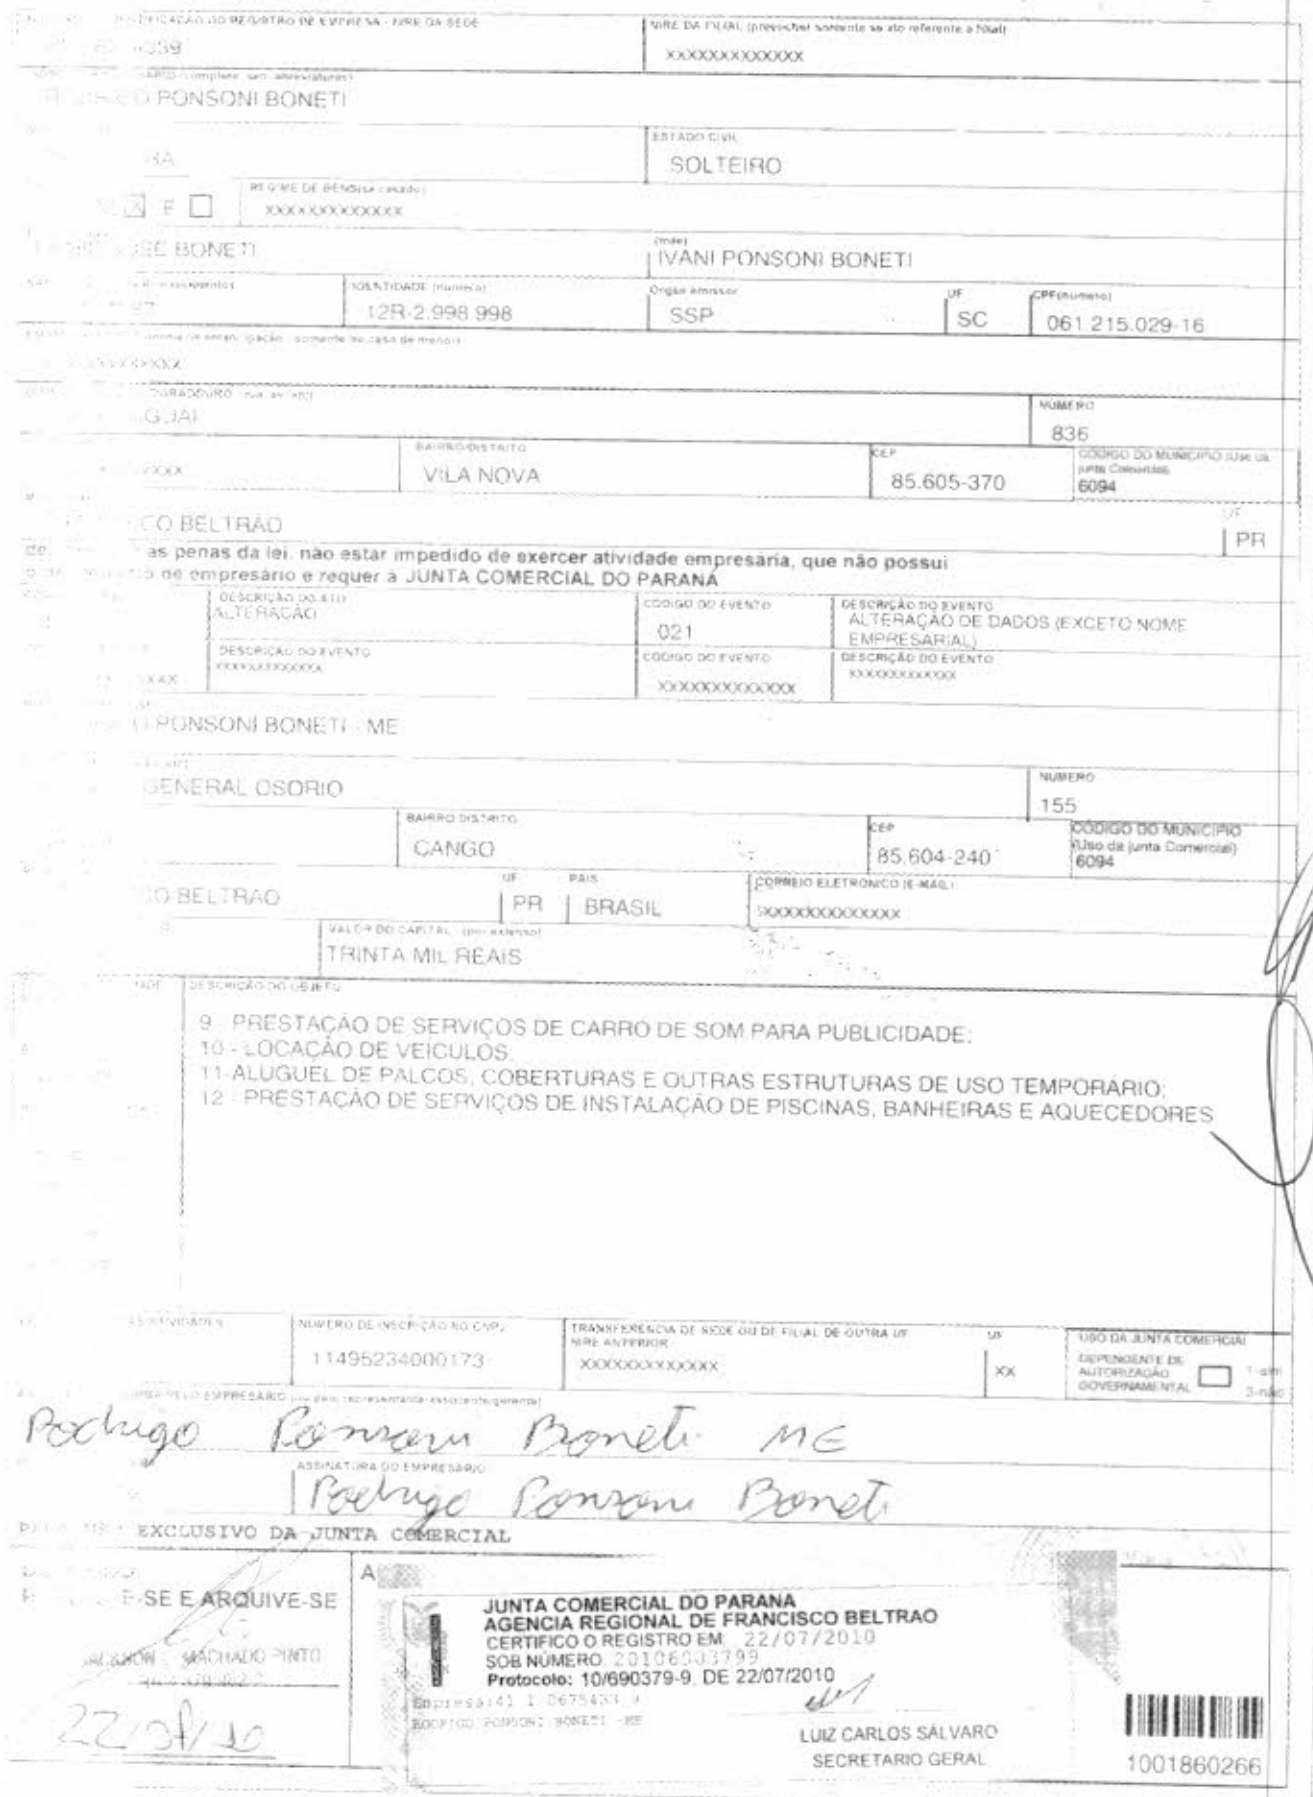 NIRE DA FILIAL (preencher somente se ato referente a filial)
XXXXXXXXXXXXX
PONSONI BONETI
ESTADO CIVIL
SOLTEIRO
REGIME DE BENS (se casado)
X F
XXXXXXXXXXXXX
BONETI
(mãe)
IVANI PONSONI BONETI
IDENTIDADE (número)
Órgão emissor
UF
CPF (número)
12R-2.998.998
SSP
SC
061.215.029-16
NÚMERO
836
BAIRRO/DISTRITO
CEP
CÓDIGO DO MUNICIPIO (Use da junta Comercial)
VILA NOVA
85.605-370
6094
BELTRÃO
UF
PR
as penas da lei, não estar impedido de exercer atividade empresária, que não possui
de empresário e requer à JUNTA COMERCIAL DO PARANÁ
DESCRIÇÃO DO ATO
ALTERAÇÃO
CÓDIGO DO EVENTO
021
DESCRIÇÃO DO EVENTO
ALTERAÇÃO DE DADOS (EXCETO NOME
EMPRESARIAL)
DESCRIÇÃO DO EVENTO
XXXXXXXXXXXXX
CÓDIGO DO EVENTO
XXXXXXXXXXXXX
DESCRIÇÃO DO EVENTO
XXXXXXXXXXXXX
PONSONI BONETI - ME
GENERAL OSORIO
NUMERO
155
BAIRRO DISTRITO
CANGO
CEP
85.604-240
CÓDIGO DO MUNICÍPIO
(Uso da junta Comercial)
6094
BELTRAO
UF
PR
PAIS
BRASIL
CORREIO ELETRONICO (E-MAIL)
XXXXXXXXXXXXXX
VALOR DO CAPITAL - (por extenso)
TRINTA MIL REAIS
DESCRIÇÃO DO OBJETO
9 - PRESTAÇÃO DE SERVIÇOS DE CARRO DE SOM PARA PUBLICIDADE;
10 - LOCAÇÃO DE VEÍCULOS;
11-ALUGUEL DE PALCOS, COBERTURAS E OUTRAS ESTRUTURAS DE USO TEMPORARIO;
12 - PRESTAÇÃO DE SERVIÇOS DE INSTALAÇÃO DE PISCINAS, BANHEIRAS E AQUECEDORES
NUMERO DE INSCRIÇÃO NO CNPJ
11495234000173
TRANSFERENCIA DE SEDE OU DE FILIAL DE OUTRA UF
NIRE ANTERIOR
XXXXXXXXXXXXX
UF
XX
USO DA JUNTA COMERCIAL
DEPENDENTE DE
AUTORIZAÇÃO
GOVERNAMENTAL
1-sim
3-não
Rodrigo Ponsoni Boneti ME
ASSINATURA DO EMPRESARIO
Rodrigo Ponsoni Boneti
EXCLUSIVO DA JUNTA COMERCIAL
E-SE E ARQUIVE-SE
MACHADO PINTO
JUNTA COMERCIAL DO PARANA
AGENCIA REGIONAL DE FRANCISCO BELTRAO
CERTIFICO O REGISTRO EM: 22/07/2010
SOB NÚMERO: 20106903799
Protocolo: 10/690379-9, DE 22/07/2010
RODRIGO PONSONI BONETI -ME
LUIZ CARLOS SALVARO
SECRETARIO GERAL
1001860266